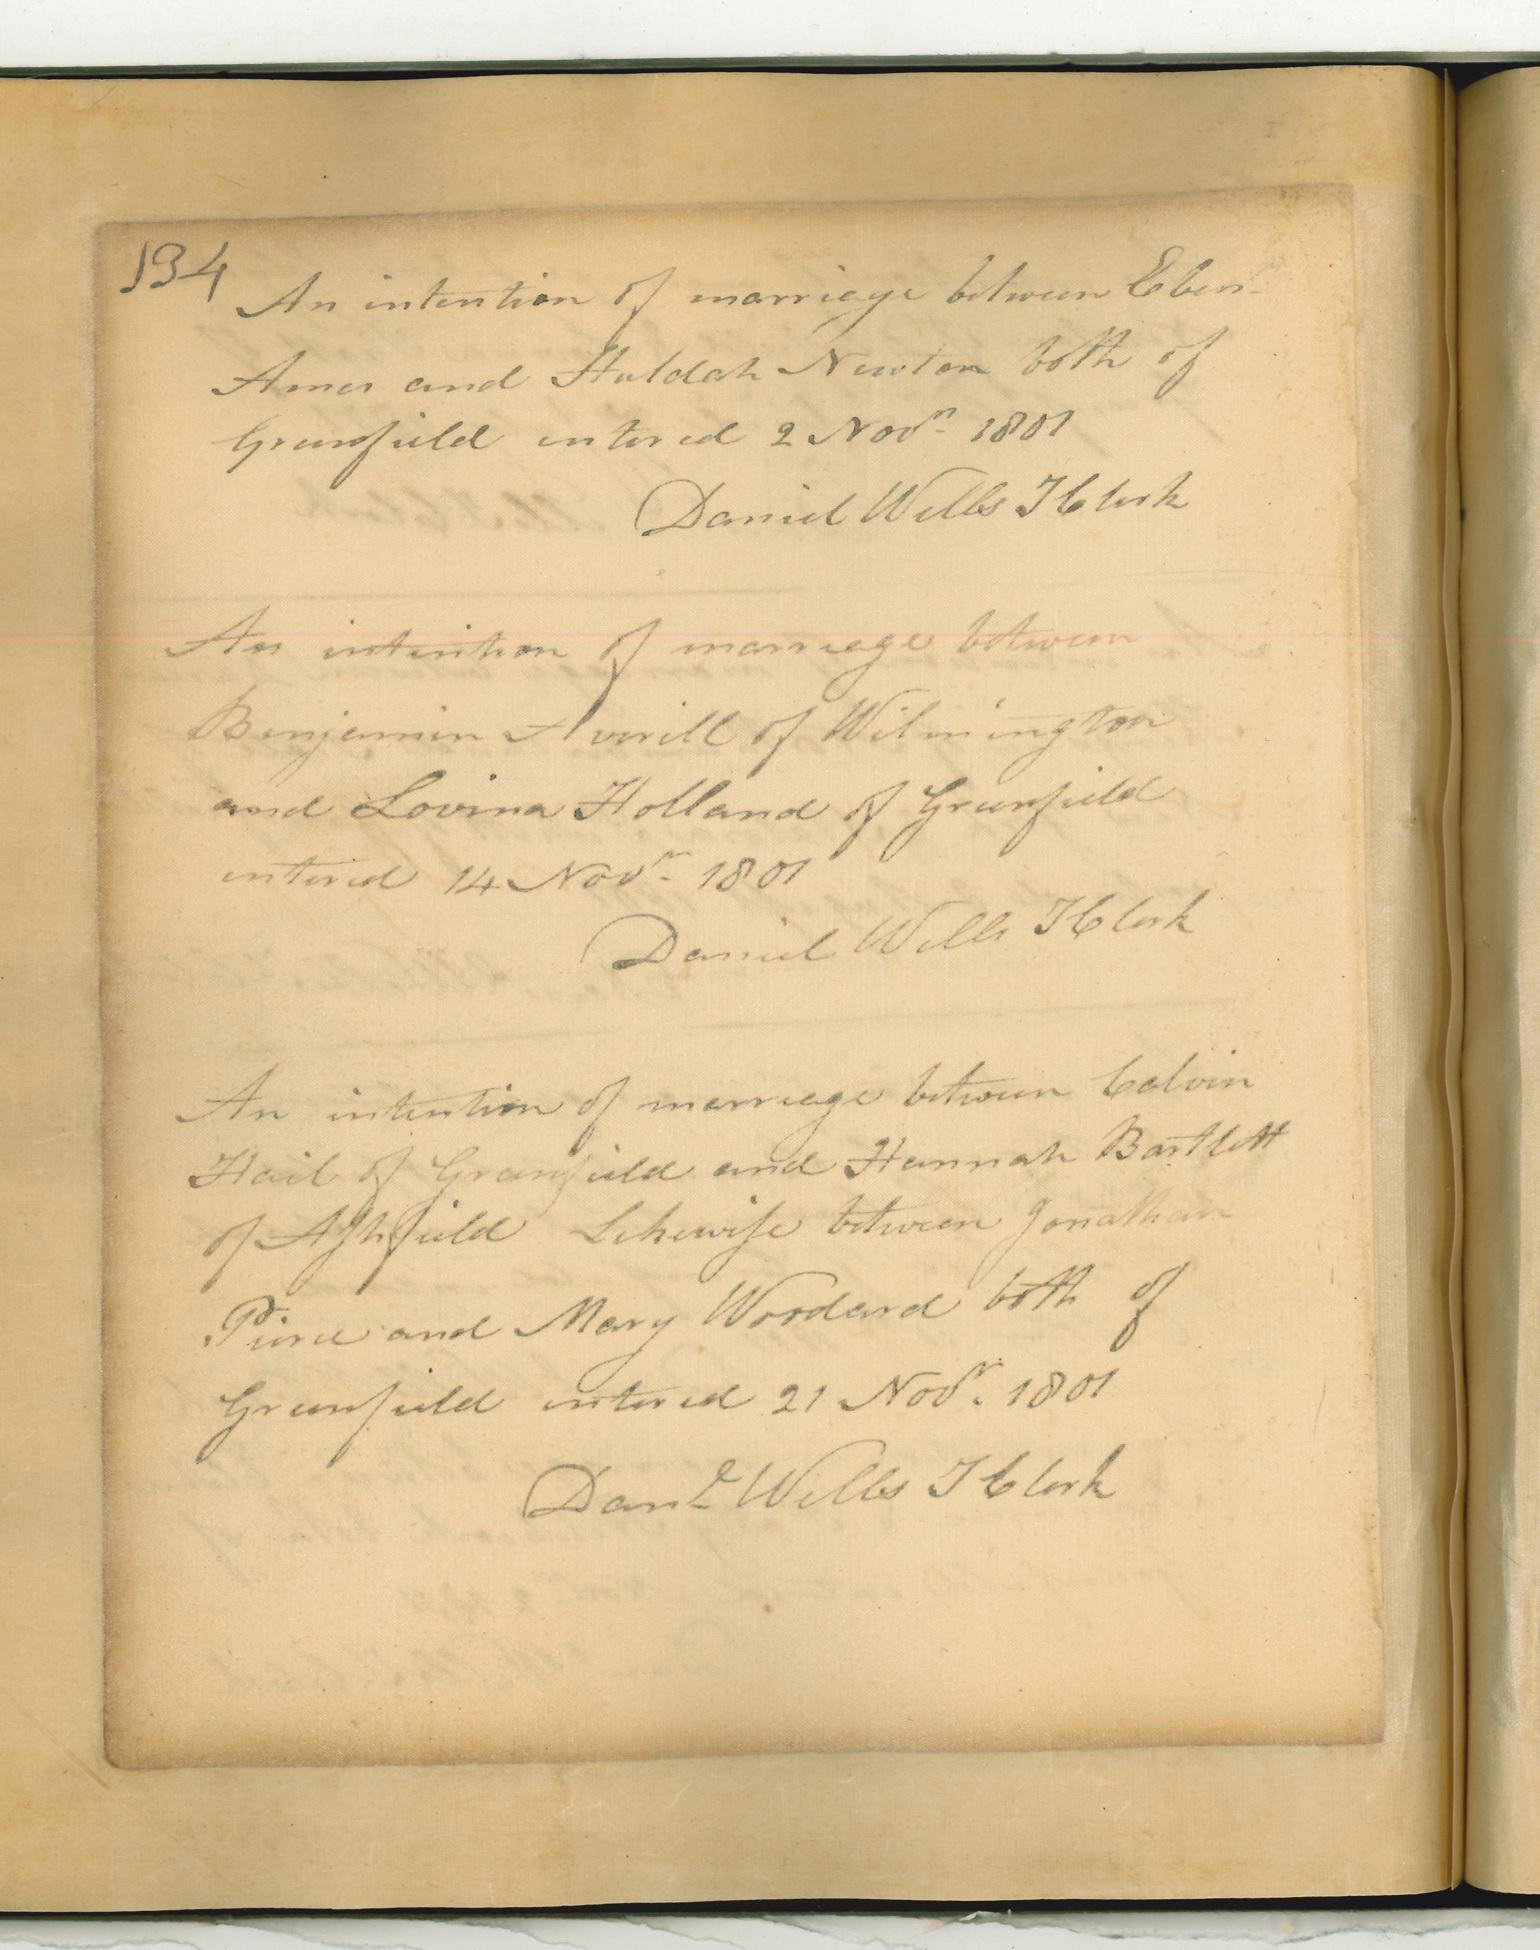 134
An intention of marriage between Eben.
Ames and Huldah Newton both of
Greenfield entered 2 Novr. 1801
Daniel Wells T Clerk
An intention of marriage between
Benjamin Averill of Wilmington
and Lovina Holland of Greenfield
entered 14 Novr. 1801
Daniel Wells T Clerk
An intention of marriage between Calvin
Hail of Greenfield and Hannah Bartlett
of Aſhfield Likewiſe between Jonathan
Pierce and Mary Woodard both of
Greenfield entered 21 Novr. 1801
Danl. Wells T Clerk